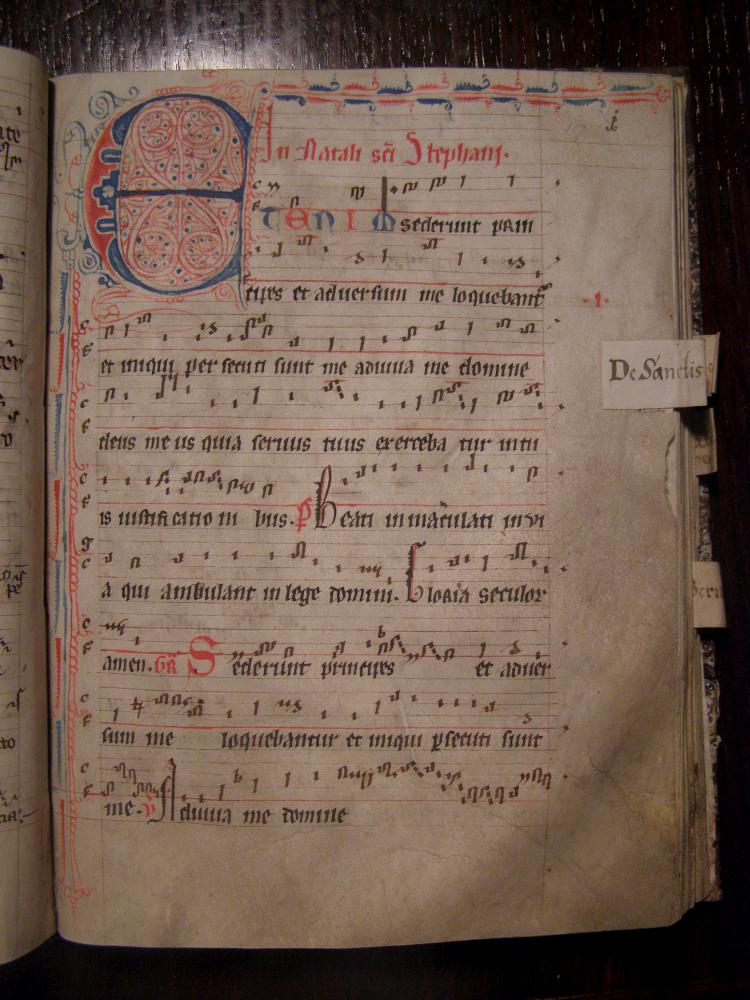 In Natali sci Stephani.
ETENIM sederunt prin
cipes et aduersum me loquebant
·1·
et iniqui persecuti sunt me adiuua me domine
De Sanctis
deus meus quia seruus tuus exerceba tur in tu
is iustificatio ni bus. ps Beati inmaculati in vi
a qui ambulant in lege domini. Gloria seculor
amen. Gr Sederunt principes et aduer
sum me loquebantur et iniqui psecuti sunt
me. V Adiuua me domine